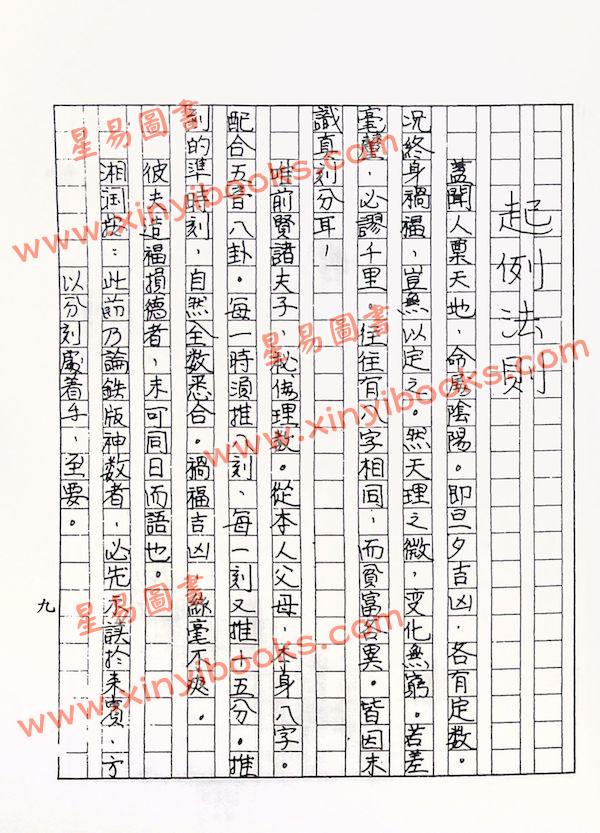 起例法則
蓋聞人稟天地，命屬陰陽。即旦夕吉凶，各有定數。
況終身禍福，豈無以定之。然天理之微，变化無窮。若差
毫釐，必謬千里。往往有八字相同，而貧富各異。皆因未
識真刻分耳，
唯前賢諸夫子，秘傳理数。從本人父母，本身八字。
配合五音八卦。每一時須推八刻、每一刻又推十五分。推
到的準時刻，自然全数悉合。禍福吉凶 絲毫不爽。
彼夫造福損德者，未可同日而語也。
湘润按：此前乃論鉄版神数者，必先不誤於来賓、方
以分刻處着手，至要。
九
星易圖書
www.xinyibooks.com
星易圖書
www.xinyibooks.com
星易圖書
www.xinyibooks.com